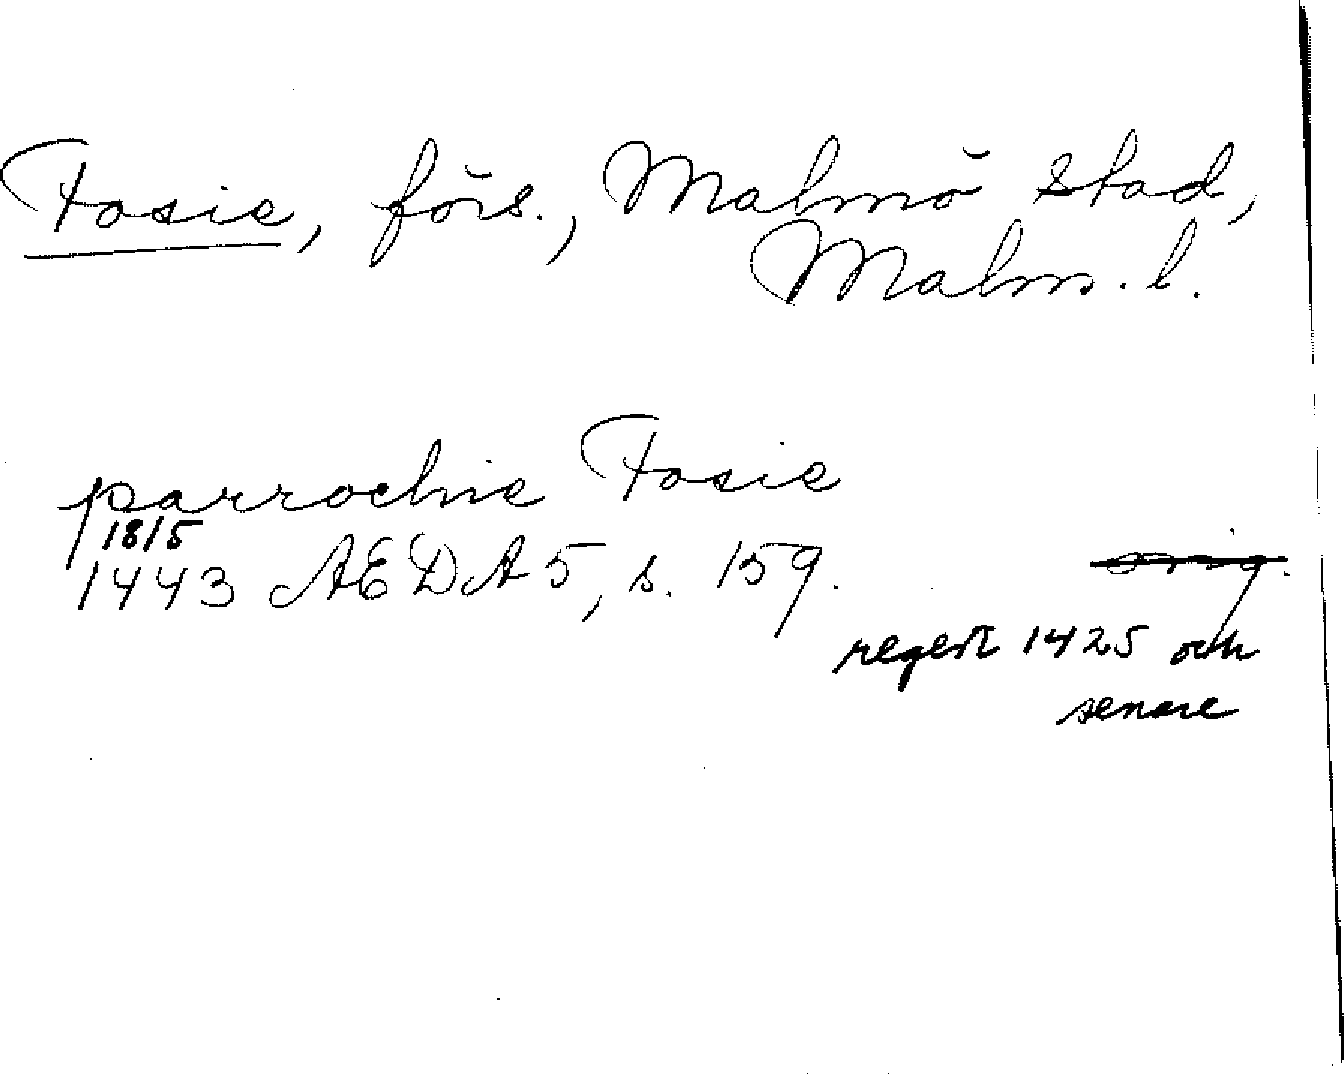 Fosie, förs., Malmö stad,
Malm. l.
parrochie Fosie
18/5
1443 AEDA 5, s. 159.
orig.
regest 1425 och
senare